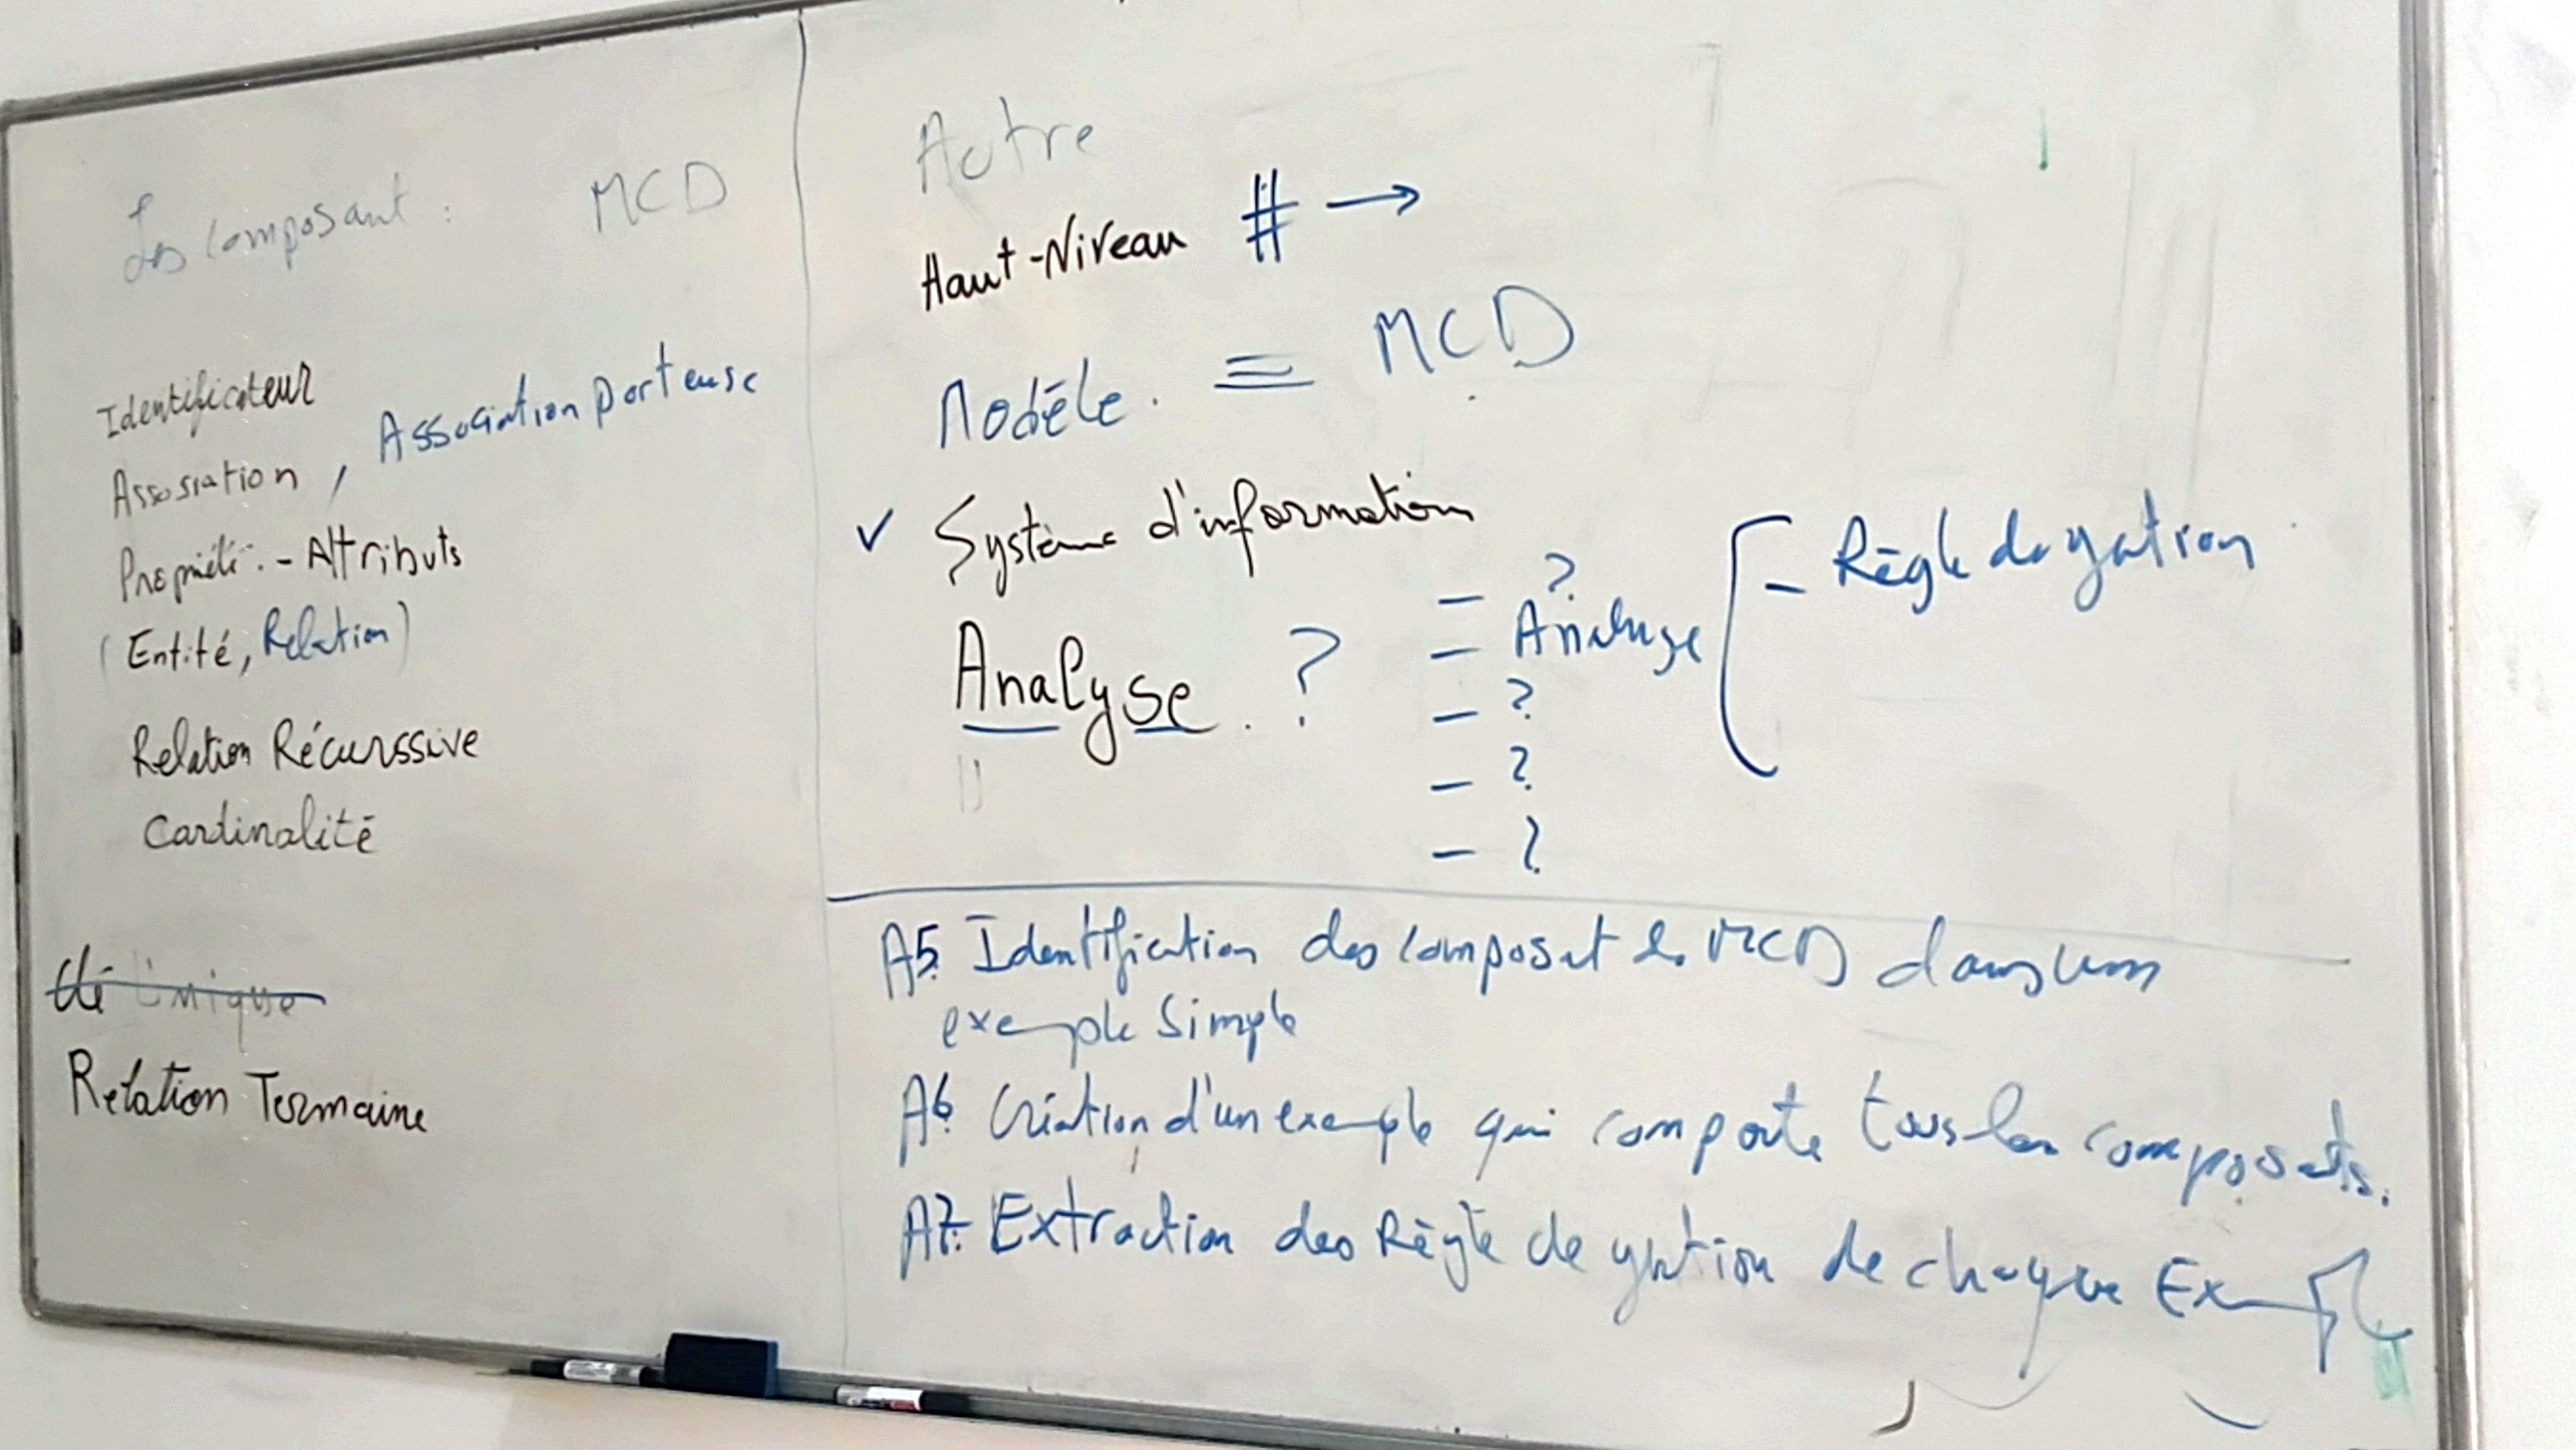 Les composant : MCD
Identificateur
Assosiation , Association porteuse
Propriété. - Attributs
(Entité, Relation)
Relation Récurssive
Cardinalité
Clé Unique
Relation Ternaire
Autre
Haut-Niveau # →
Modéle. = MCD
✓ Système d'information
Analyse. ?
- ?
- Analyse [ - Règle de gestion
- ?
- ?
- ?
A5. Identification des composant de MCD dans un
exemple Simple
A6. Création d'un exemple qui comporte tous les composants.
A7. Extraction des Règle de gestion de chaque Exemple